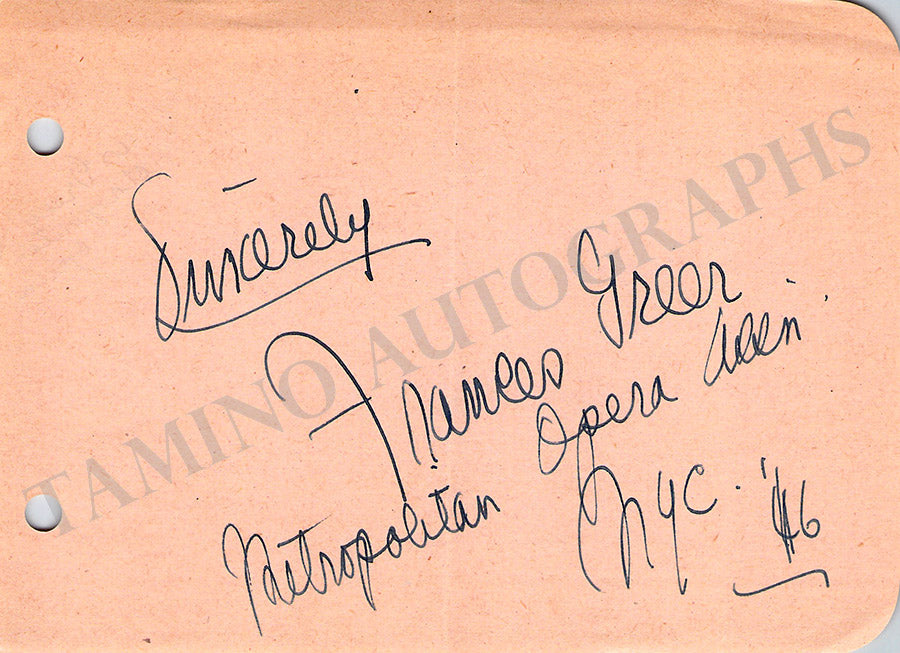 Sincerely
Frances Greer
Metropolitan Opera Assn.
NYC. '46
TAMINO AUTOGRAPHS